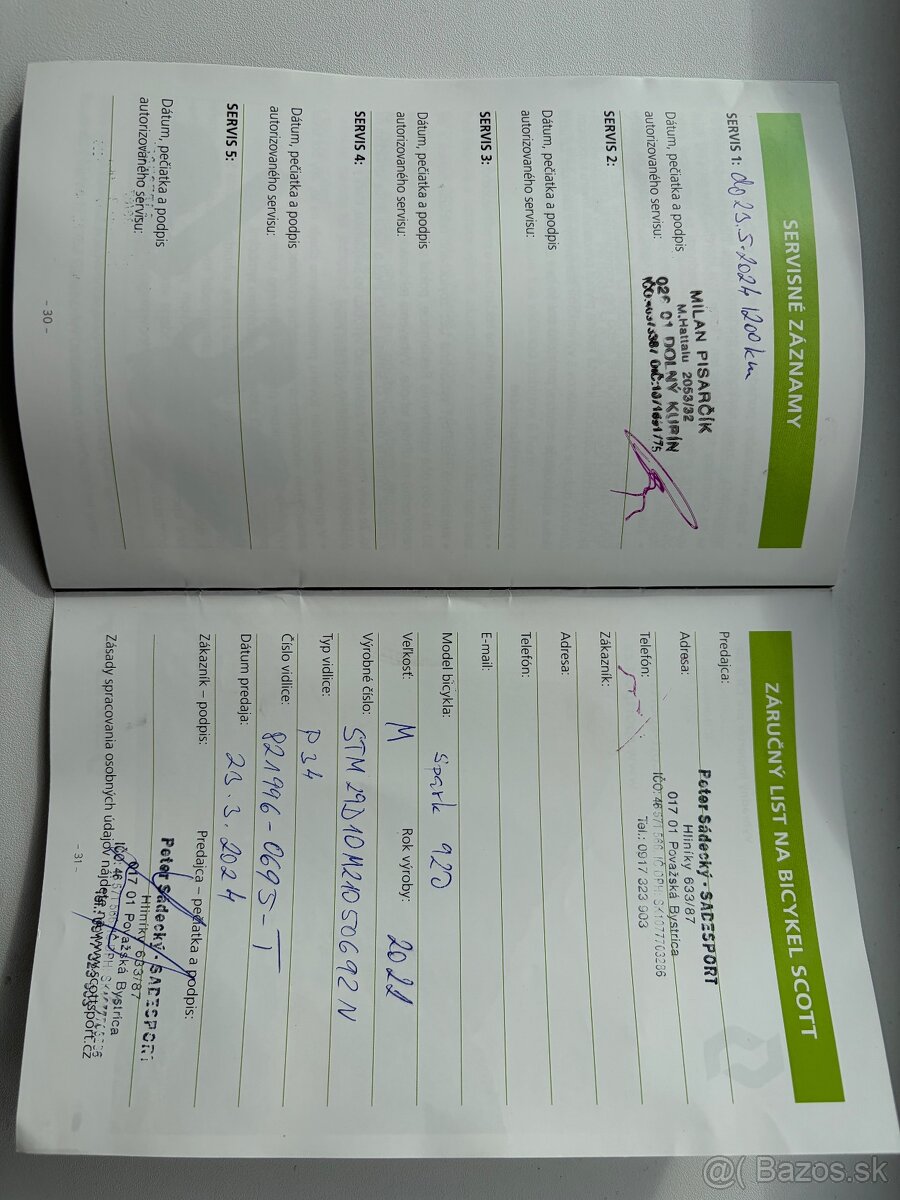 SERVISNÉ ZÁZNAMY
SERVIS 1: do 23.5.2024 1200km
Dátum, pečiatka a podpis
autorizovaného servisu:
MILAN PISARČÍK
M.Hattalu 2053/32
026 01 DOLNÝ KUBÍN
SERVIS 2:
Dátum, pečiatka a podpis
autorizovaného servisu:
SERVIS 3:
Dátum, pečiatka a podpis
autorizovaného servisu:
SERVIS 4:
Dátum, pečiatka a podpis
autorizovaného servisu:
SERVIS 5:
Dátum, pečiatka a podpis
autorizovaného servisu:
- 30 -
ZÁRUČNÝ LIST NA BICYKEL SCOTT
Predajca:
Peter Sádecký - SADESPORT
Adresa:
Hliníky 633/87
017 01 Považská Bystrica
Telefón:
IČO: 46 571 566, IČ DPH: SK1077703286
Tel.: 0917 323 903
Zákazník:
Adresa:
Telefón:
E-mail:
Model bicykla: Spark 920
Veľkosť: M Rok výroby: 2022
Výrobné číslo: STM29D10M21050692N
Typ vidlice: P34
Číslo vidlice: 821996-0695-T
Dátum predaja: 23.3.2024
Zákazník – podpis: Predajca – pečiatka a podpis:
Peter Sádecký - SADESPORT
Hliníky 633/87
017 01 Považská Bystrica
Zásady spracovania osobných údajov nájdete na www.scottsport.cz
- 31 -
@( Bazos.sk